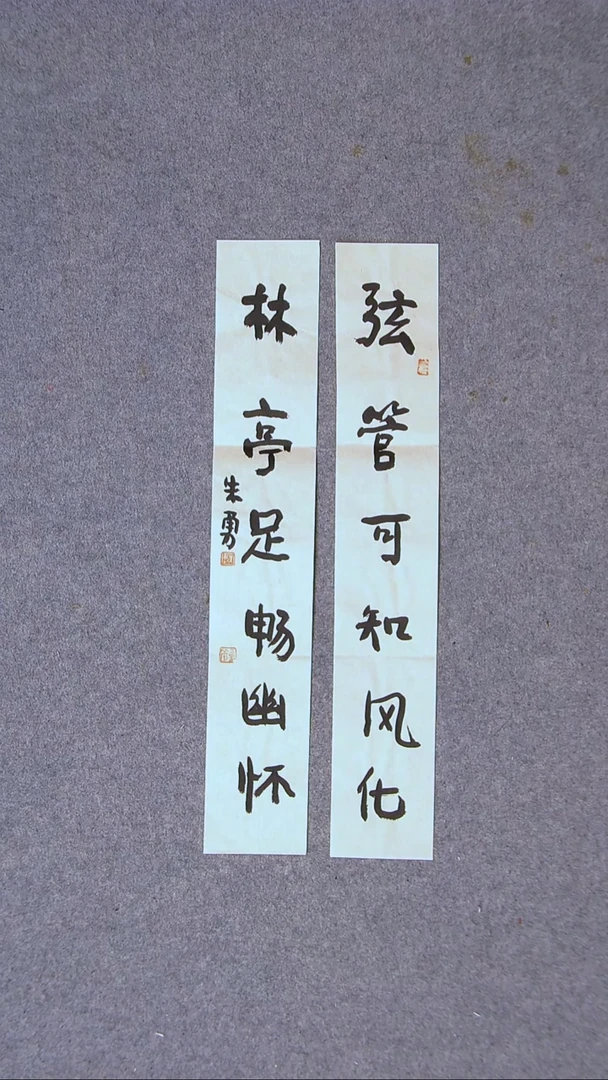 弦管可知风化
林亭足畅幽怀
朱勇